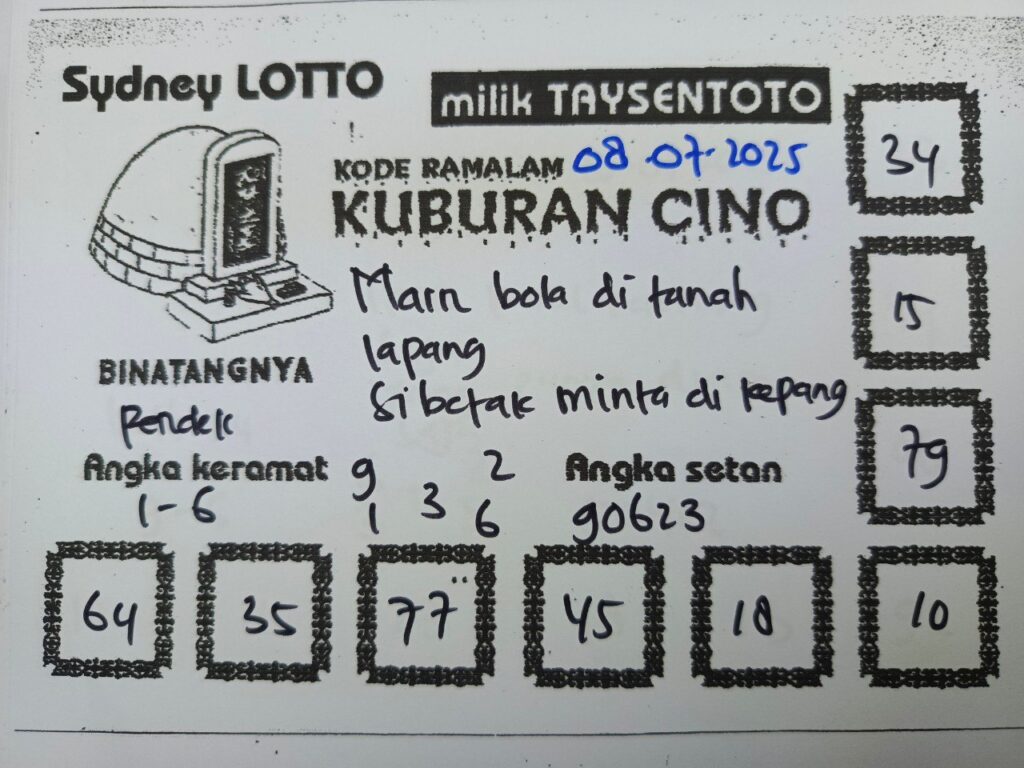 Sydney LOTTO
milik TAYSENTOTO
KODE RAMALAM 08-07-2025
KUBURAN CINO
Main bola di tanah
lapang
Si botak minta di kepang
BINATANGNYA
Pendek
Angka keramat
1-6
9 2
3
1 6
Angka setan
90623
34
15
79
64 35 77 45 18 10